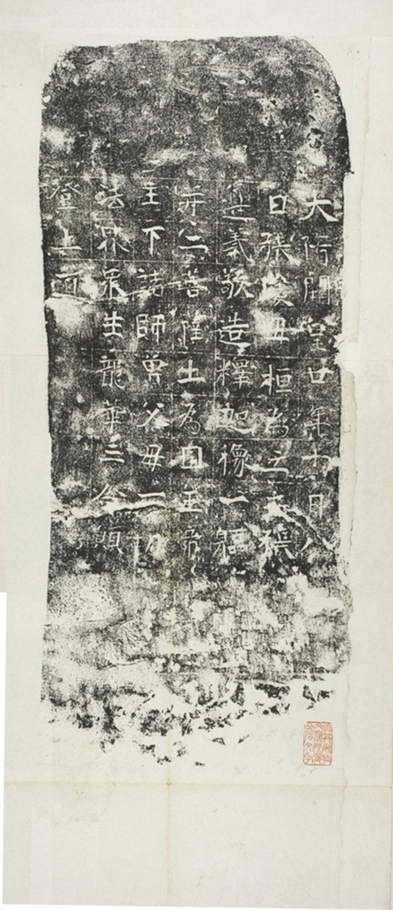 大隋開皇廿年十月八
日張峻母桓為亡息張
遵義敬造釋迦像一軀
并二菩薩上為国主帝
主下諸師父母一切
法界眾生龍華三會願
登上道